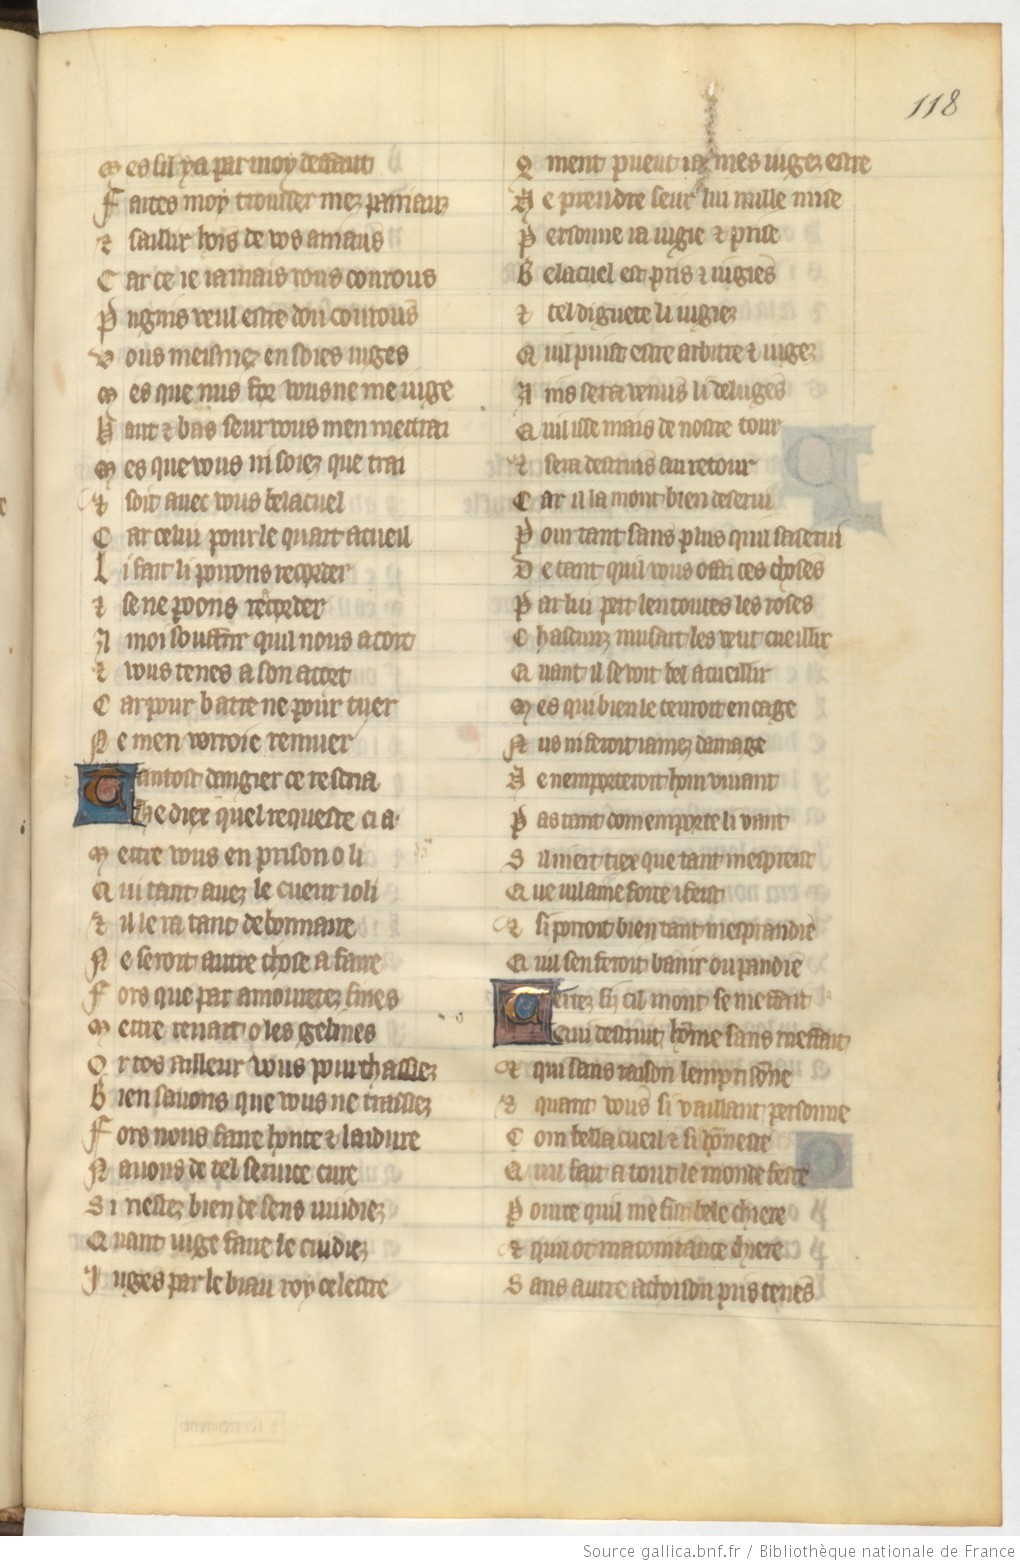 118
M es sil ya par moy deffaut
F aites moy trousser mez paniauz
⁊ saillir hors de vos amaus
C ar ce ie iamais vous courous
P ugnis veul estre dou courous
V ous meismez en soies iuges
M es que nus fors vous ne me iuge
H aut ⁊ bas seur vous men mettrai
M es que vous ni soiez que trai
⁊ soit auec vous belacuel
C ar celui pour le quart acueil
L i fait li porrons recorder
⁊ se ne poons recorder
A moi souffrir quil nous acort
⁊ vous tenes a son acort
C ar pour batre ne pour tuer
N e men vorroie remuer
Tantost dangier ce rescria
He diex quel requeste ci a
M ettre vous en prison o li
Q ui tant auez le cueur ioli
⁊ il le ra tant debonnaire
N e seroit autre chose a faire
F ors que par amouretez fines
M ettre renart o les gelines
O r tos ailleur vous pourchassez
B ien sauons que vous ne trassiez
F ors nous faire honte ⁊ laidure
N auons de tel seruice cure
S i restez bien de sens vuidiez
Q uant iuge faire le cuidiez
J uges par le biau roy celestre
Q ment puent ia mes iugez estre
N e prendre seur lui nulle mise
P ersonne ia iugie ⁊ prise
B elacuel est pris ⁊ iugies
⁊ tel diguete li iugiez
Q uil puist estre arbitre ⁊ iugez
A ins sera venus li deluges
Q uil isse mais de nostre tour
⁊ sera destruis au retour
C ar il la mont bien deserui
P our tant sans plus quil saserui
D e tant quil vous offri ces choses
P ar lui pert len toutes les roses
C hascuns musart les veut cueillir
Q uant il se voit bel acueillir
M es qui bien le tenroit en cage
N us ni feroit iamez damage
N e nemporteroit hom viuant
P as tant com emporte li vant
S il nert tiex que tant mesprent
Q ue vilaine force i feist
⁊ si porroit bien tant mesprandre
Q uil sen feroit banir ou pandre
Certez fis cil mont se meffait
Qui destruit home sans meffait
⁊ qui sans raison lemprisonne
⁊ quant vous si vaillant personne
C om bellacueil ⁊ si honeste
Q ui fait a tout le monde feste
P ource quil me fist bele chiere
⁊ quil ot macointance chiere
S ans autre achoison pris tenes
Source gallica.bnf.fr / Bibliothèque nationale de France